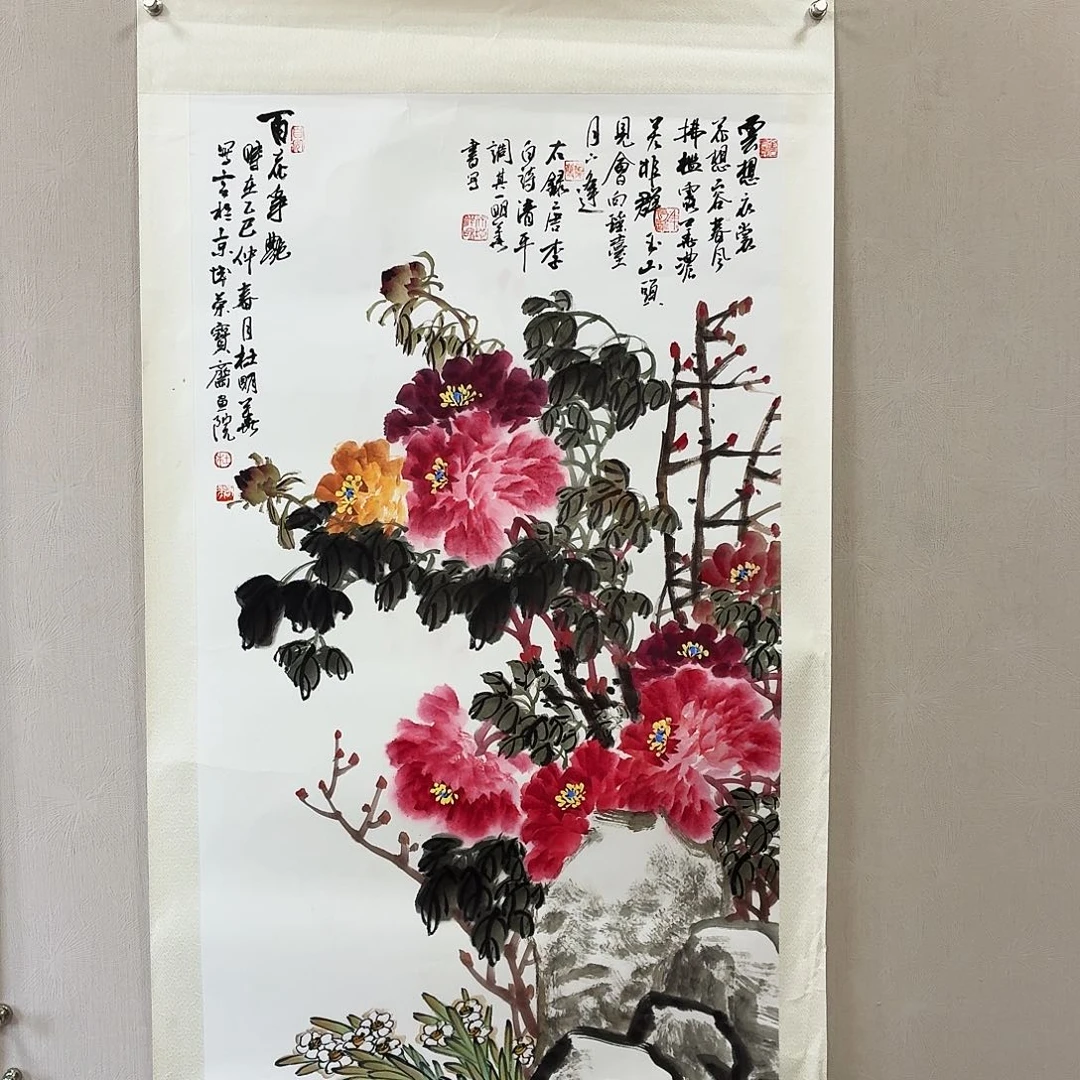 雲想衣裳
花想容春風
拂檻露華濃
若非群玉山頭
見會向瑤臺
月下逢
右録唐李
白詩清平
調其一明善
書寫
百花争艷
時在乙巳仲春月杜明善
寫於京城荣寶齋画院